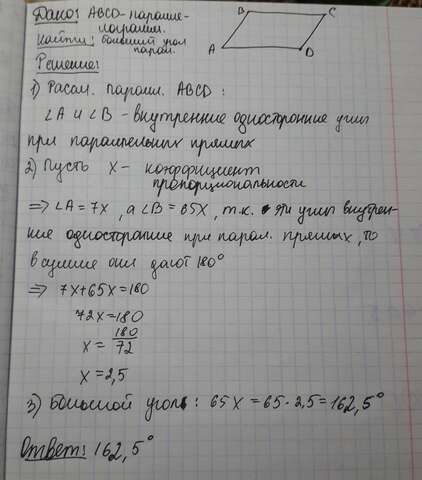 Дано: ABCD - паралле-
лограмм.
Найти: больший угол
парал.
B C
A D
Решение:
1) Рассм. паралл. ABCD:
∠A и ∠B - внутренние односторонние углы
при параллельных прямых
2) Пусть x - коэффициент
пропорциональности
⇒ ∠A = 7x, а ∠B = 65x, т.к. эти углы внутрен-
ние односторонние при парал. прямых, то
в сумме они дают 180°
⇒ 7x+65x=180
72x=180
x = 180/72
x = 2,5
3) Больший угол: 65x = 65·2,5 = 162,5°
Ответ: 162,5°